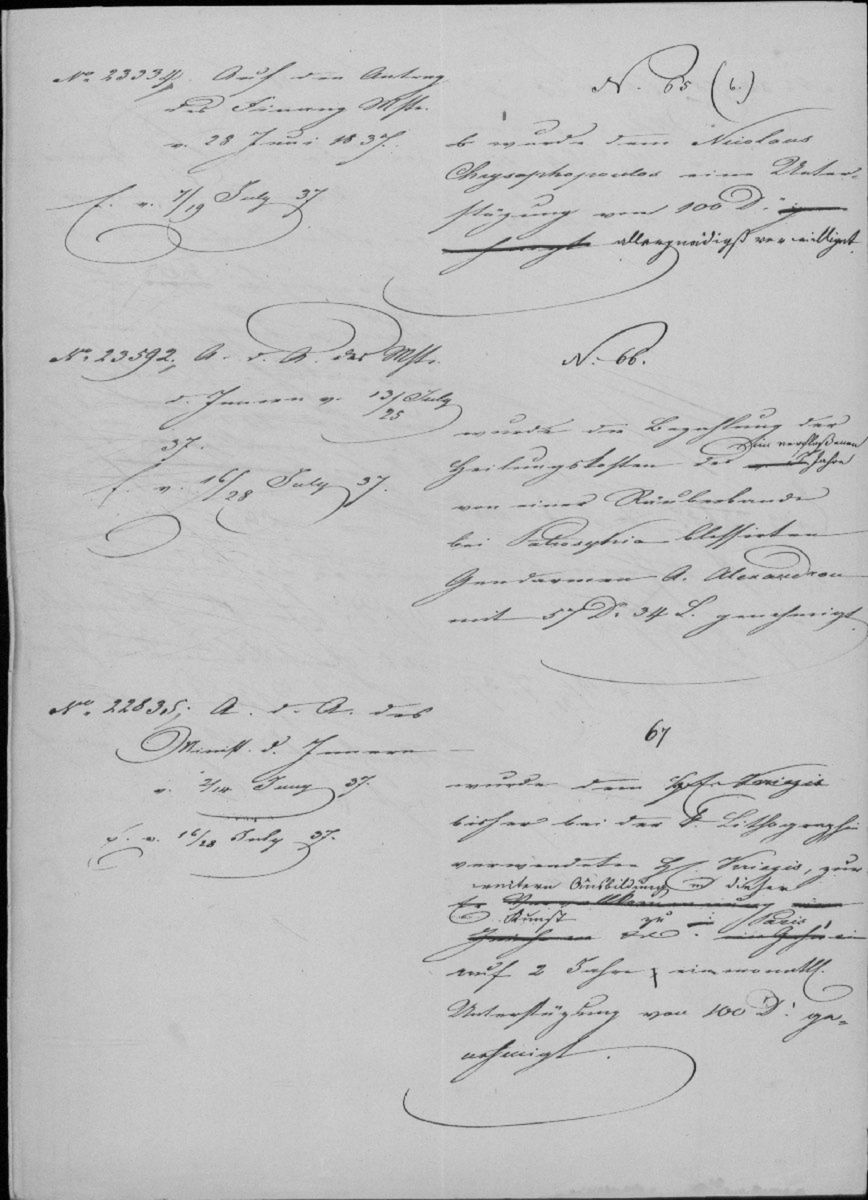 No. 23334. Auf den Antrag
des Finanz Mstr.
v. 28 Juni 1837.
E. v. 7/19 July 37
N. 65 (b.)
wurde dem Nicolaus
Chrysophopoulos eine Unter-
stüzung von 100 D.
allergnädigst verwilligt
No. 23592. A. d. A. des Mstr.
d. Innern v. 13/25 July
37.
E. v. 16/28 July 37.
N. 66.
wurde die Bezahlung der
Heilungskosten des im verfloßenen Jahre
von einer Räuberbande
bei blessirten
Gendarmen A. Alexandrou
mit 57 D. 34 L. genehmigt
No. 22835. A. d. A. des
Minist. d. Innern
v. 2/14 Juny 37.
E. v. 16/28 July 37.
67
wurde dem
bisher bei der k. Lithographie
verwendeten H. zur
weitern Ausbildung in dieser
Kunst zu Paris
auf 2 Jahre eine monatl.
Unterstüzung von 100 D. ge-
nehmigt.